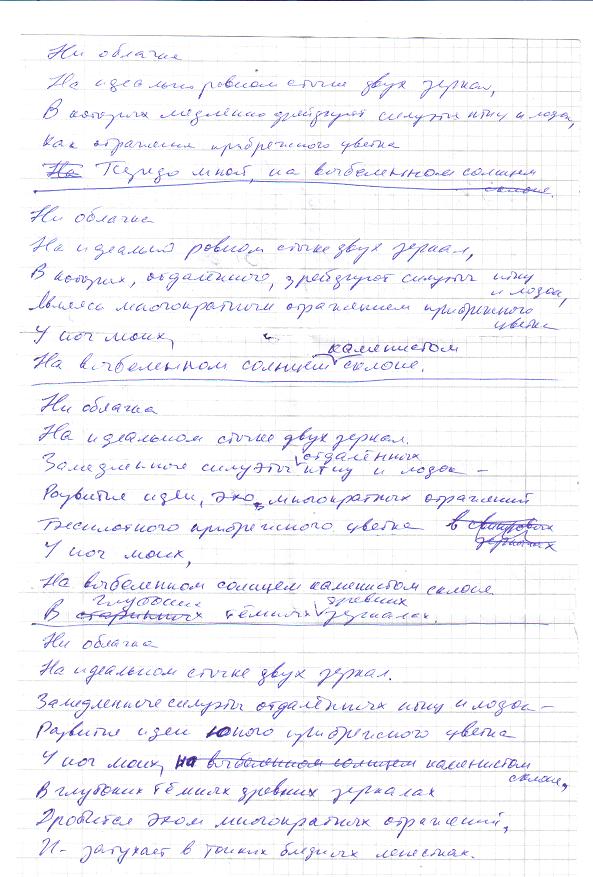 Ни облачка
На идеально ровном стыке двух зеркал,
В которых медленно дрейфуют силуэты птиц и лодок,
Как отражения прибрежного цветка
На Передо мной, на выбеленном солнцем
склоне.
Ни облачка
На идеально ровном стыке двух зеркал,
В которых, отдалённого, дрейфуют силуэты птиц
и лодок,
Являясь многократным отражением прибрежного
цветка
У ног моих,
каменистом
На выбеленном солнцем склоне.
Ни облачка
На идеальном стыке двух зеркал.
отдалённых
Замедленные силуэты птиц и лодок –
Развитие идеи, эхо многократных отражений
прибрежного цветка в
У ног моих,
На выбеленном солнцем каменистом склоне
глубоких древних
В старинных тёмных зеркалах.
Ни облачка
На идеальном стыке двух зеркал.
Замедленные силуэты отдалённых птиц и лодок –
Развитие идеи юного прибрежного цветка
У ног моих, на выбеленном солнцем каменистом
склоне,
В глубоких тёмных древних зеркалах
Дробится эхом многократных отражений,
И – затухает в тонких бледных лепестках.